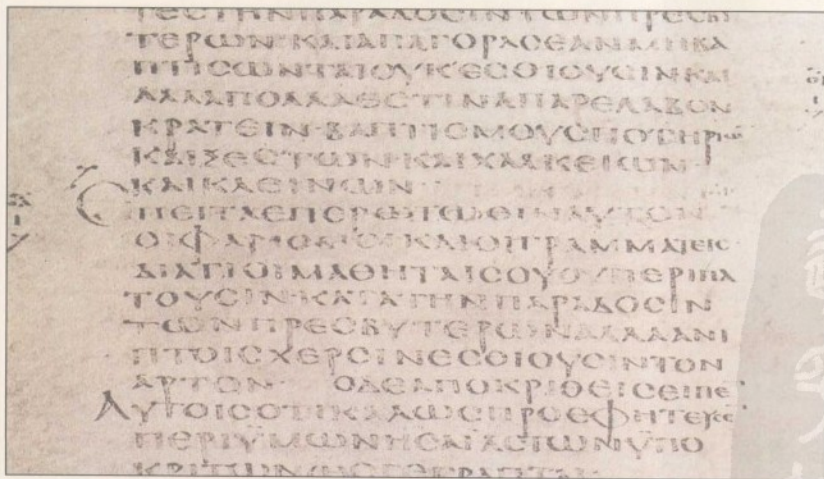 ΤΕϹΤΗΝΠΑΡΑΔΟϹΙΝΤΩΝΠΡΕϹΒΥ
ΤΕΡΩΝ·ΚΑΙΑΠΑΓΟΡΑϹΕΑΝΜΗΒΑ
ΠΤΙϹΩΝΤΑΙΟΥΚΕϹΘΙΟΥϹΙΝΚΑΙ
ΑΛΛΑΠΟΛΛΑΕϹΤΙΝΑΠΑΡΕΛΑΒΟΝ
ΚΡΑΤΕΙΝ·ΒΑΠΤΙϹΜΟΥϹΠΟΤΗΡΙΩΝ
ΚΑΙΞΕϹΤΩΝΚΑΙΧΑΛΚΕΙΩΝ·
ΚΑΙΚΛΕΙΝΩΝ
ΕΠΕΙΤΑΕΠΕΡΩΤΩϹΙΝΑΥΤΟΝ
ΟΙΦΑΡΙϹΑΙΟΙΚΑΙΟΙΓΡΑΜΜΑΤΕΙϹ
ΔΙΑΤΙΟΙΜΑΘΗΤΑΙϹΟΥΟΥΠΕΡΙΠΑ
ΤΟΥϹΙΝΚΑΤΑΤΗΝΠΑΡΑΔΟϹΙΝ
ΤΩΝΠΡΕϹΒΥΤΕΡΩΝΑΛΛΑΑΝΙ
ΠΤΟΙϹΧΕΡϹΙΝΕϹΘΙΟΥϹΙΝΤΟΝ
ΑΡΤΟΝ· ΟΔΕΑΠΟΚΡΙΘΕΙϹΕΙΠΕ
ΑΥΤΟΙϹΟΤΙΚΑΛΩϹΠΡΟΕΦΗΤΕΥϹΕ
ΠΕΡΙΫΜΩΝΗϹΑΙΑϹΤΩΝΥΠΟ
ΚΡΙΤΩΝΩϹΓΕΓΡΑΠΤΑΙ·